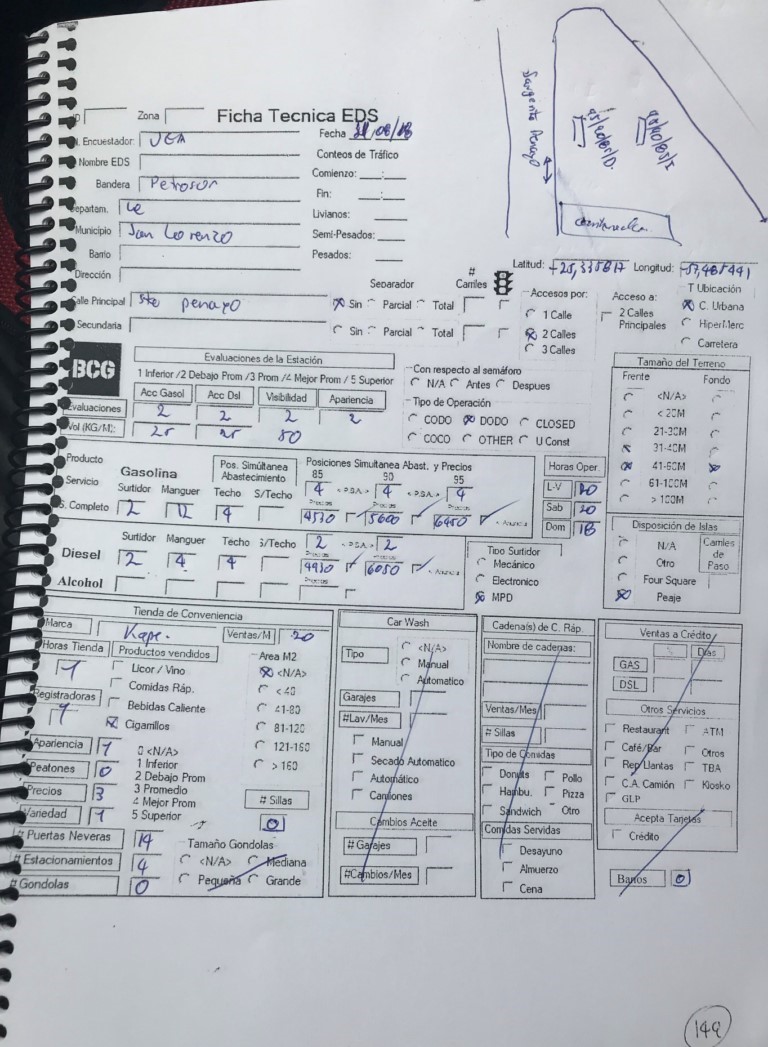 Sargento Penayo
95/90/85/D.
95/90/85/D
Zona Ficha Tecnica EDS
Encuestador: JEA Fecha 31/08/18
Nombre EDS Conteos de Tráfico
Bandera Petrosur Comienzo: __:__
Departam. Ce Fin: __:__
Municipio San Lorenzo Livianos:
Barrio Semi-Pesados:
Dirección Pesados:
Latitud: -25,335817 Longitud: -57,485441
Calle Principal Ste penayo
Separador # Carriles
Sin Parcial Total
Secundaria
Sin Parcial Total
Accesos por:
1 Calle
2 Calles
3 Calles
Acceso a:
2 Calles Principales
T Ubicación
C. Urbana
HiperMerc
Carretera
BCG
Evaluaciones de la Estación
1 Inferior /2 Debajo Prom /3 Prom /4 Mejor Prom / 5 Superior
Acc Gasol Acc Dsl Visibilidad Apariencia
Evaluaciones 2 2 2 2
Vol (KG/M): 25 25 50
Con respecto al semáforo
N/A Antes Despues
Tipo de Operación
CODO DODO CLOSED
COCO OTHER U Const
Tamaño del Terreno
Frente Fondo
<N/A>
< 20M
21-30M
31-40M
41-60M
61-100M
> 100M
Producto Gasolina Pos. Simúltanea Abastecimiento Posiciones Simultanea Abast. y Precios
Servicio 85 90 95
Surtidor Manguer Techo S/Techo 4 4 4
S. Completo 2 12 4 4530 5600 6450
Horas Oper.
L-V 20
Sab 20
Dom 18
Diesel Surtidor Manguer Techo S/Techo 2 2
2 4 4 4930 6050
Alcohol
Tipo Surtidor
Mecánico
Electronico
MPD
Disposición de Islas
N/A
Otro
Four Square
Peaje
Carriles de Paso
Tienda de Conveniencia
Marca Kape. Ventas/M 20
Horas Tienda Productos vendidos Area M2
Licor / Vino <N/A>
Comidas Ráp. < 40
Registradoras Bebidas Caliente 41-80
1 Cigarrillos 81-120
Apariencia 1 0 <N/A> 121-160
Peatones 0 1 Inferior > 160
2 Debajo Prom
Precios 3 3 Promedio
4 Mejor Prom # Sillas
Variedad 1 5 Superior 0
# Puertas Neveras 14 Tamaño Gondolas
# Estacionamientos 4 <N/A> Mediana
# Gondolas 0 Pequeña Grande
Car Wash
Tipo <N/A>
Manual
Automatico
Garajes
#Lav/Mes
Manual
Secado Automatico
Automático
Camiones
Cambios Aceite
# Garajes
#Cambios/Mes
Cadena(s) de C. Ráp.
Nombre de cadenas:
Ventas/Mes
# Sillas
Tipo de Comidas
Donuts Pollo
Hambu. Pizza
Sandwich Otro
Comidas Servidas
Desayuno
Almuerzo
Cena
Ventas a Crédito
% Días
GAS
DSL
Otros Servicios
Restaurant ATM
Café/Bar Otros
Rep Llantas TBA
C.A. Camión Kiosko
GLP
Acepta Tarjetas
Crédito
Baños 0
149